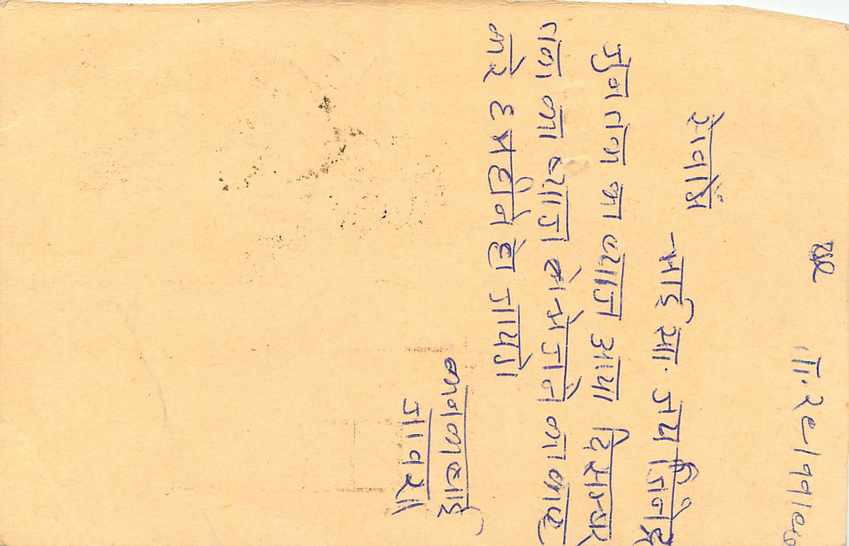 ता. २९/११/७७
सेवामें
भाई सा. जय जिनेन्द्र
जुन तक का ब्याज आया दिसम्बर
तक का ब्याज भेजने का कष्ट
करे ६ महीने हो जायगे
कनकबाई
जावरा